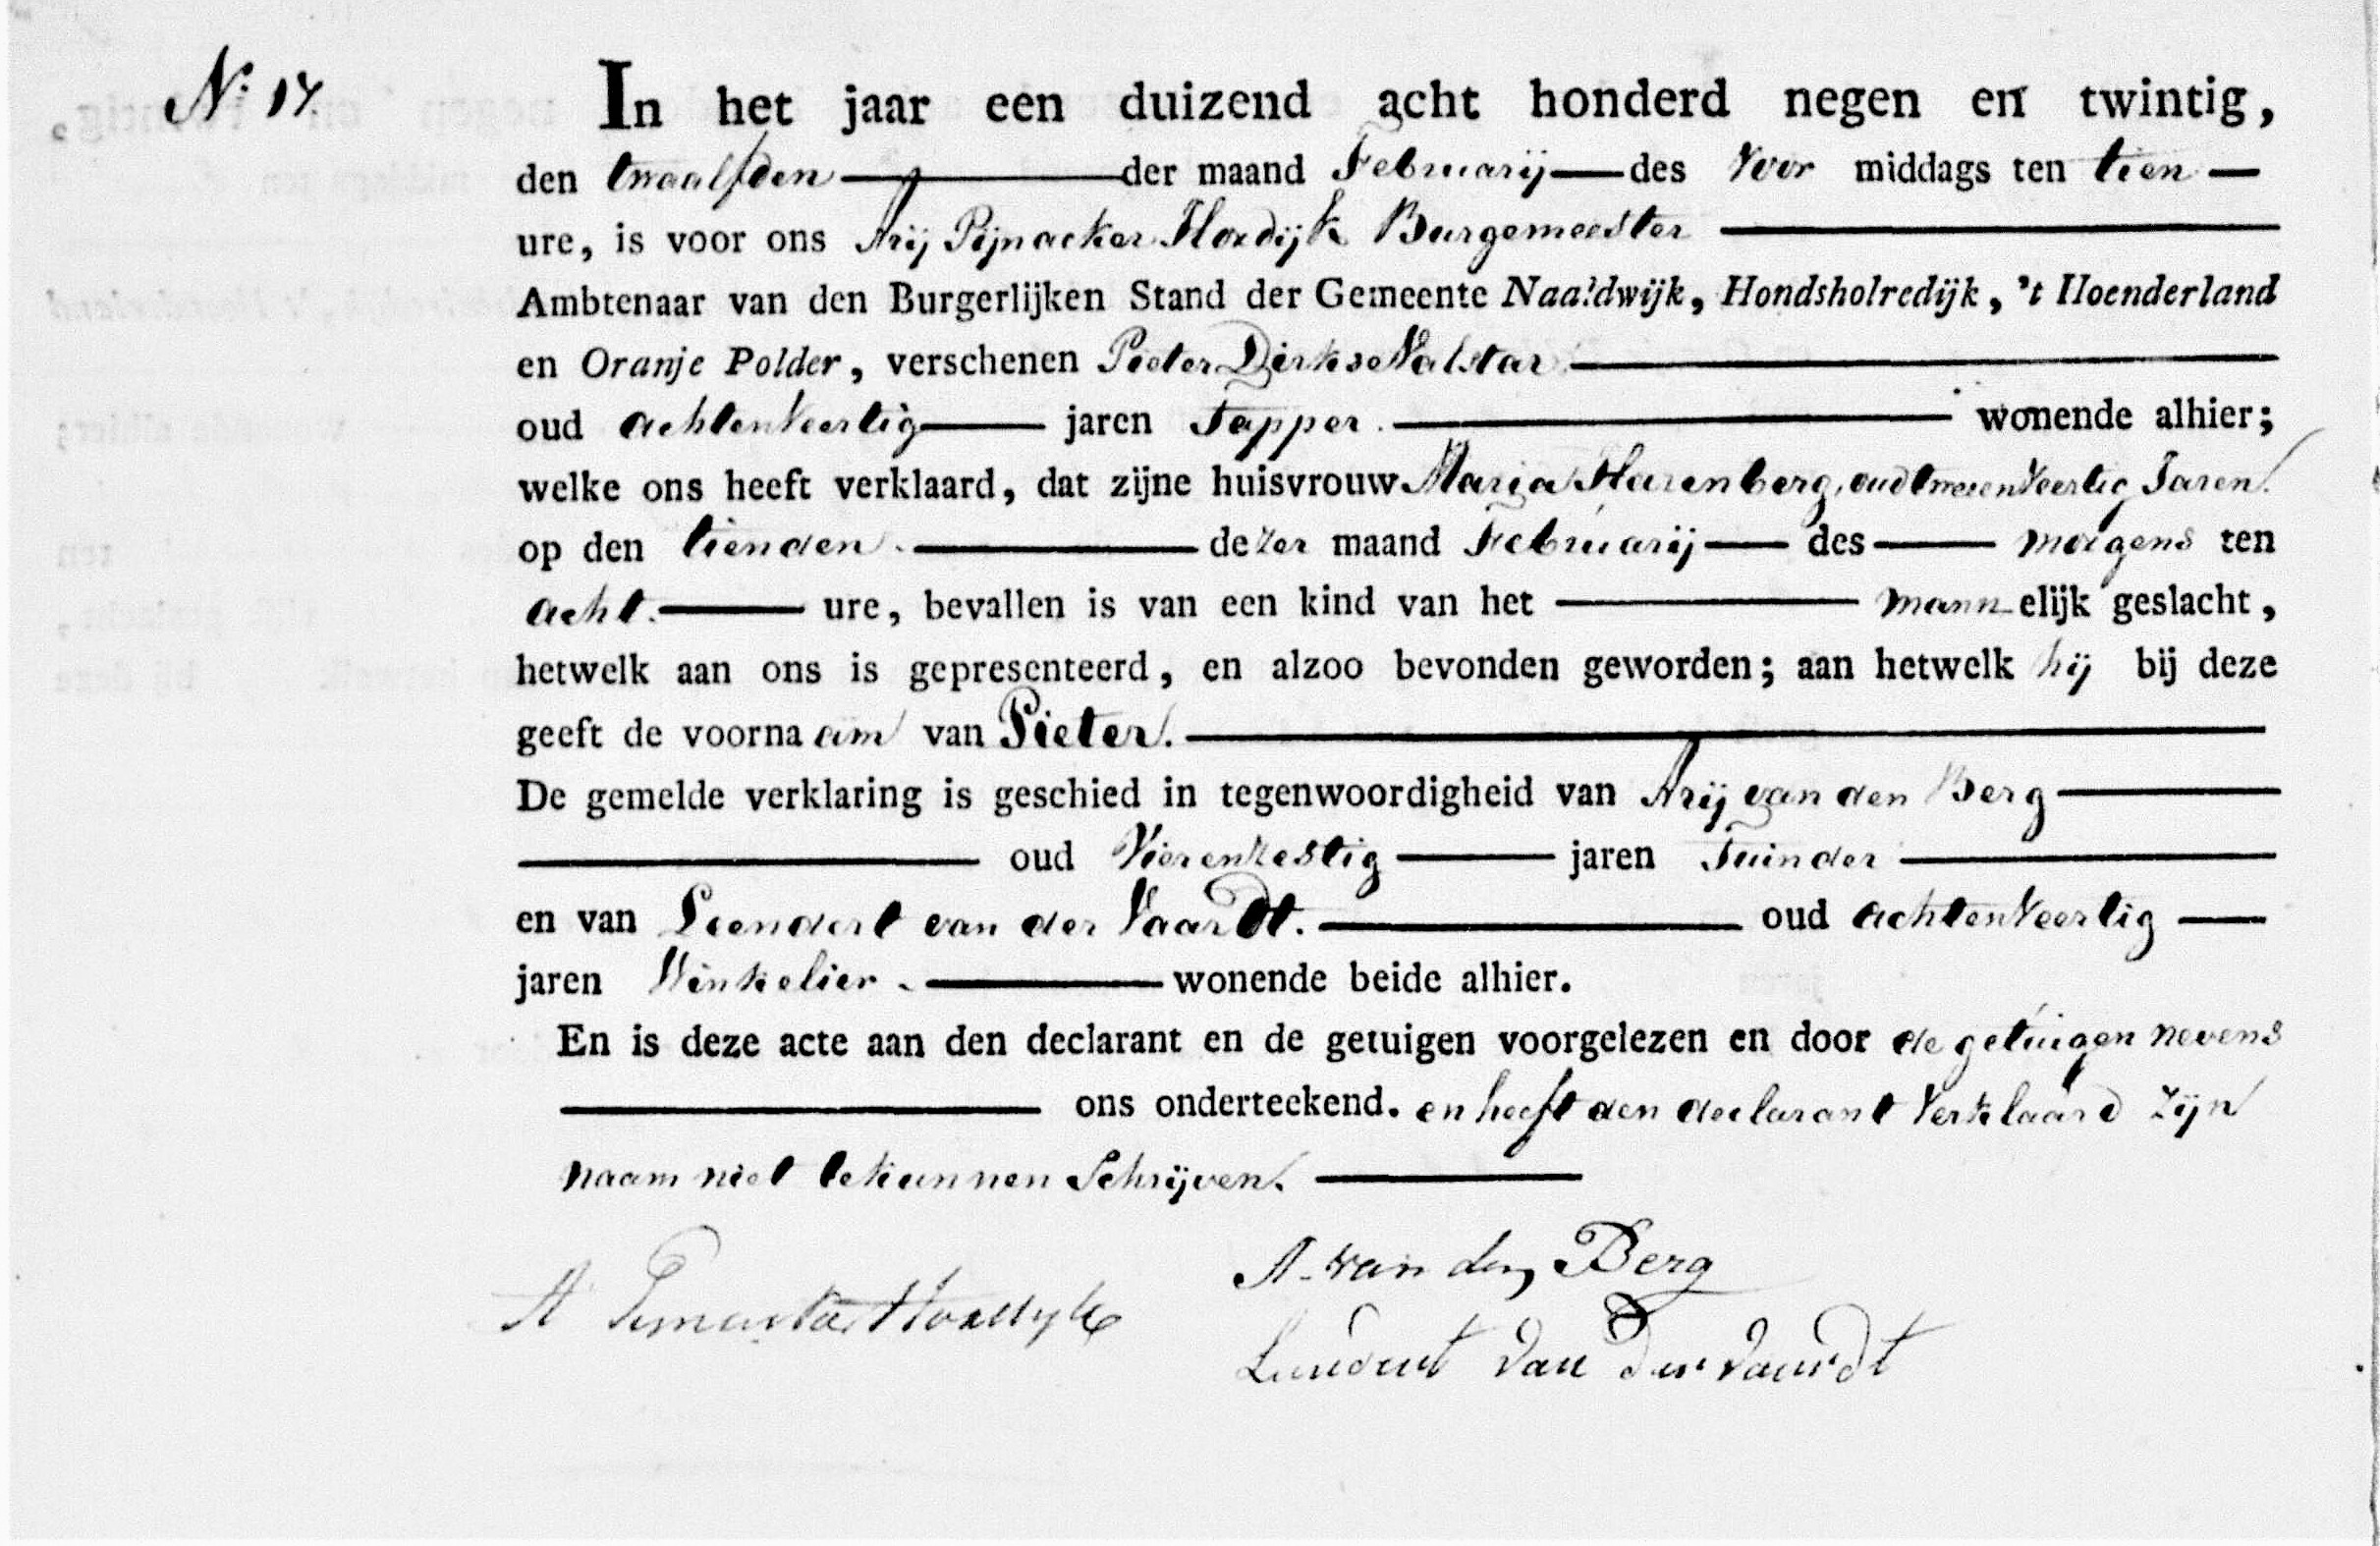 N: 17.
In het jaar een duizend acht honderd negen en twintig,
den twaalfden der maand Februarij des Voor middags ten tien
ure, is voor ons Arij Pijnacker Hordijk Burgemeester
Ambtenaar van den Burgerlijken Stand der Gemeente Naaldwijk, Hondsholredijk, 't Hoenderland
en Oranje Polder, verschenen Pieter Dirkse Valstar
oud achtenveertig jaren Tapper. wonende alhier;
welke ons heeft verklaard, dat zijne huisvrouw Maria Harenberg, oud tweeenveertig Jaren.
op den tienden dezer maand Februarij des morgens ten
acht. ure, bevallen is van een kind van het mannelijk geslacht,
hetwelk aan ons is gepresenteerd, en alzoo bevonden geworden; aan hetwelk hij bij deze
geeft de voornaam van Pieter.
De gemelde verklaring is geschied in tegenwoordigheid van Arij van den Berg
oud Vierenzestig jaren Tuinder
en van Leendert van der Vaardt. oud achtenveertig
jaren Winkelier. wonende beide alhier.
En is deze acte aan den declarant en de getuigen voorgelezen en door de getuigen nevens
ons onderteekend. en heeft den declarant verklaard zijn
naam niet te kunnen Schrijven.
A. van den Berg
A Pijnacker Hordijk
Leendert van der Vaardt